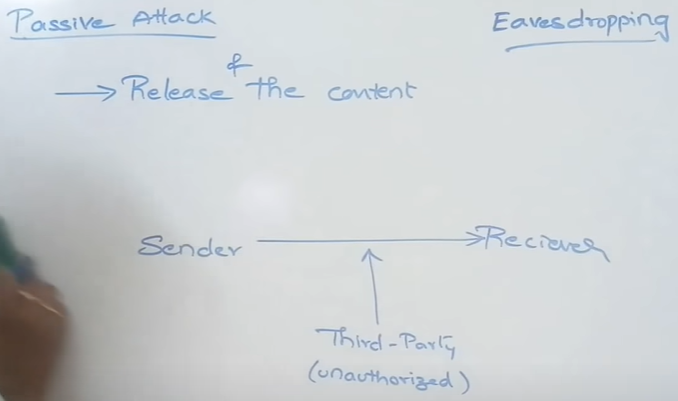 Passive Attack
Eavesdropping
→ Release of the content
Sender → Reciever
Third-Party
(unauthorized)